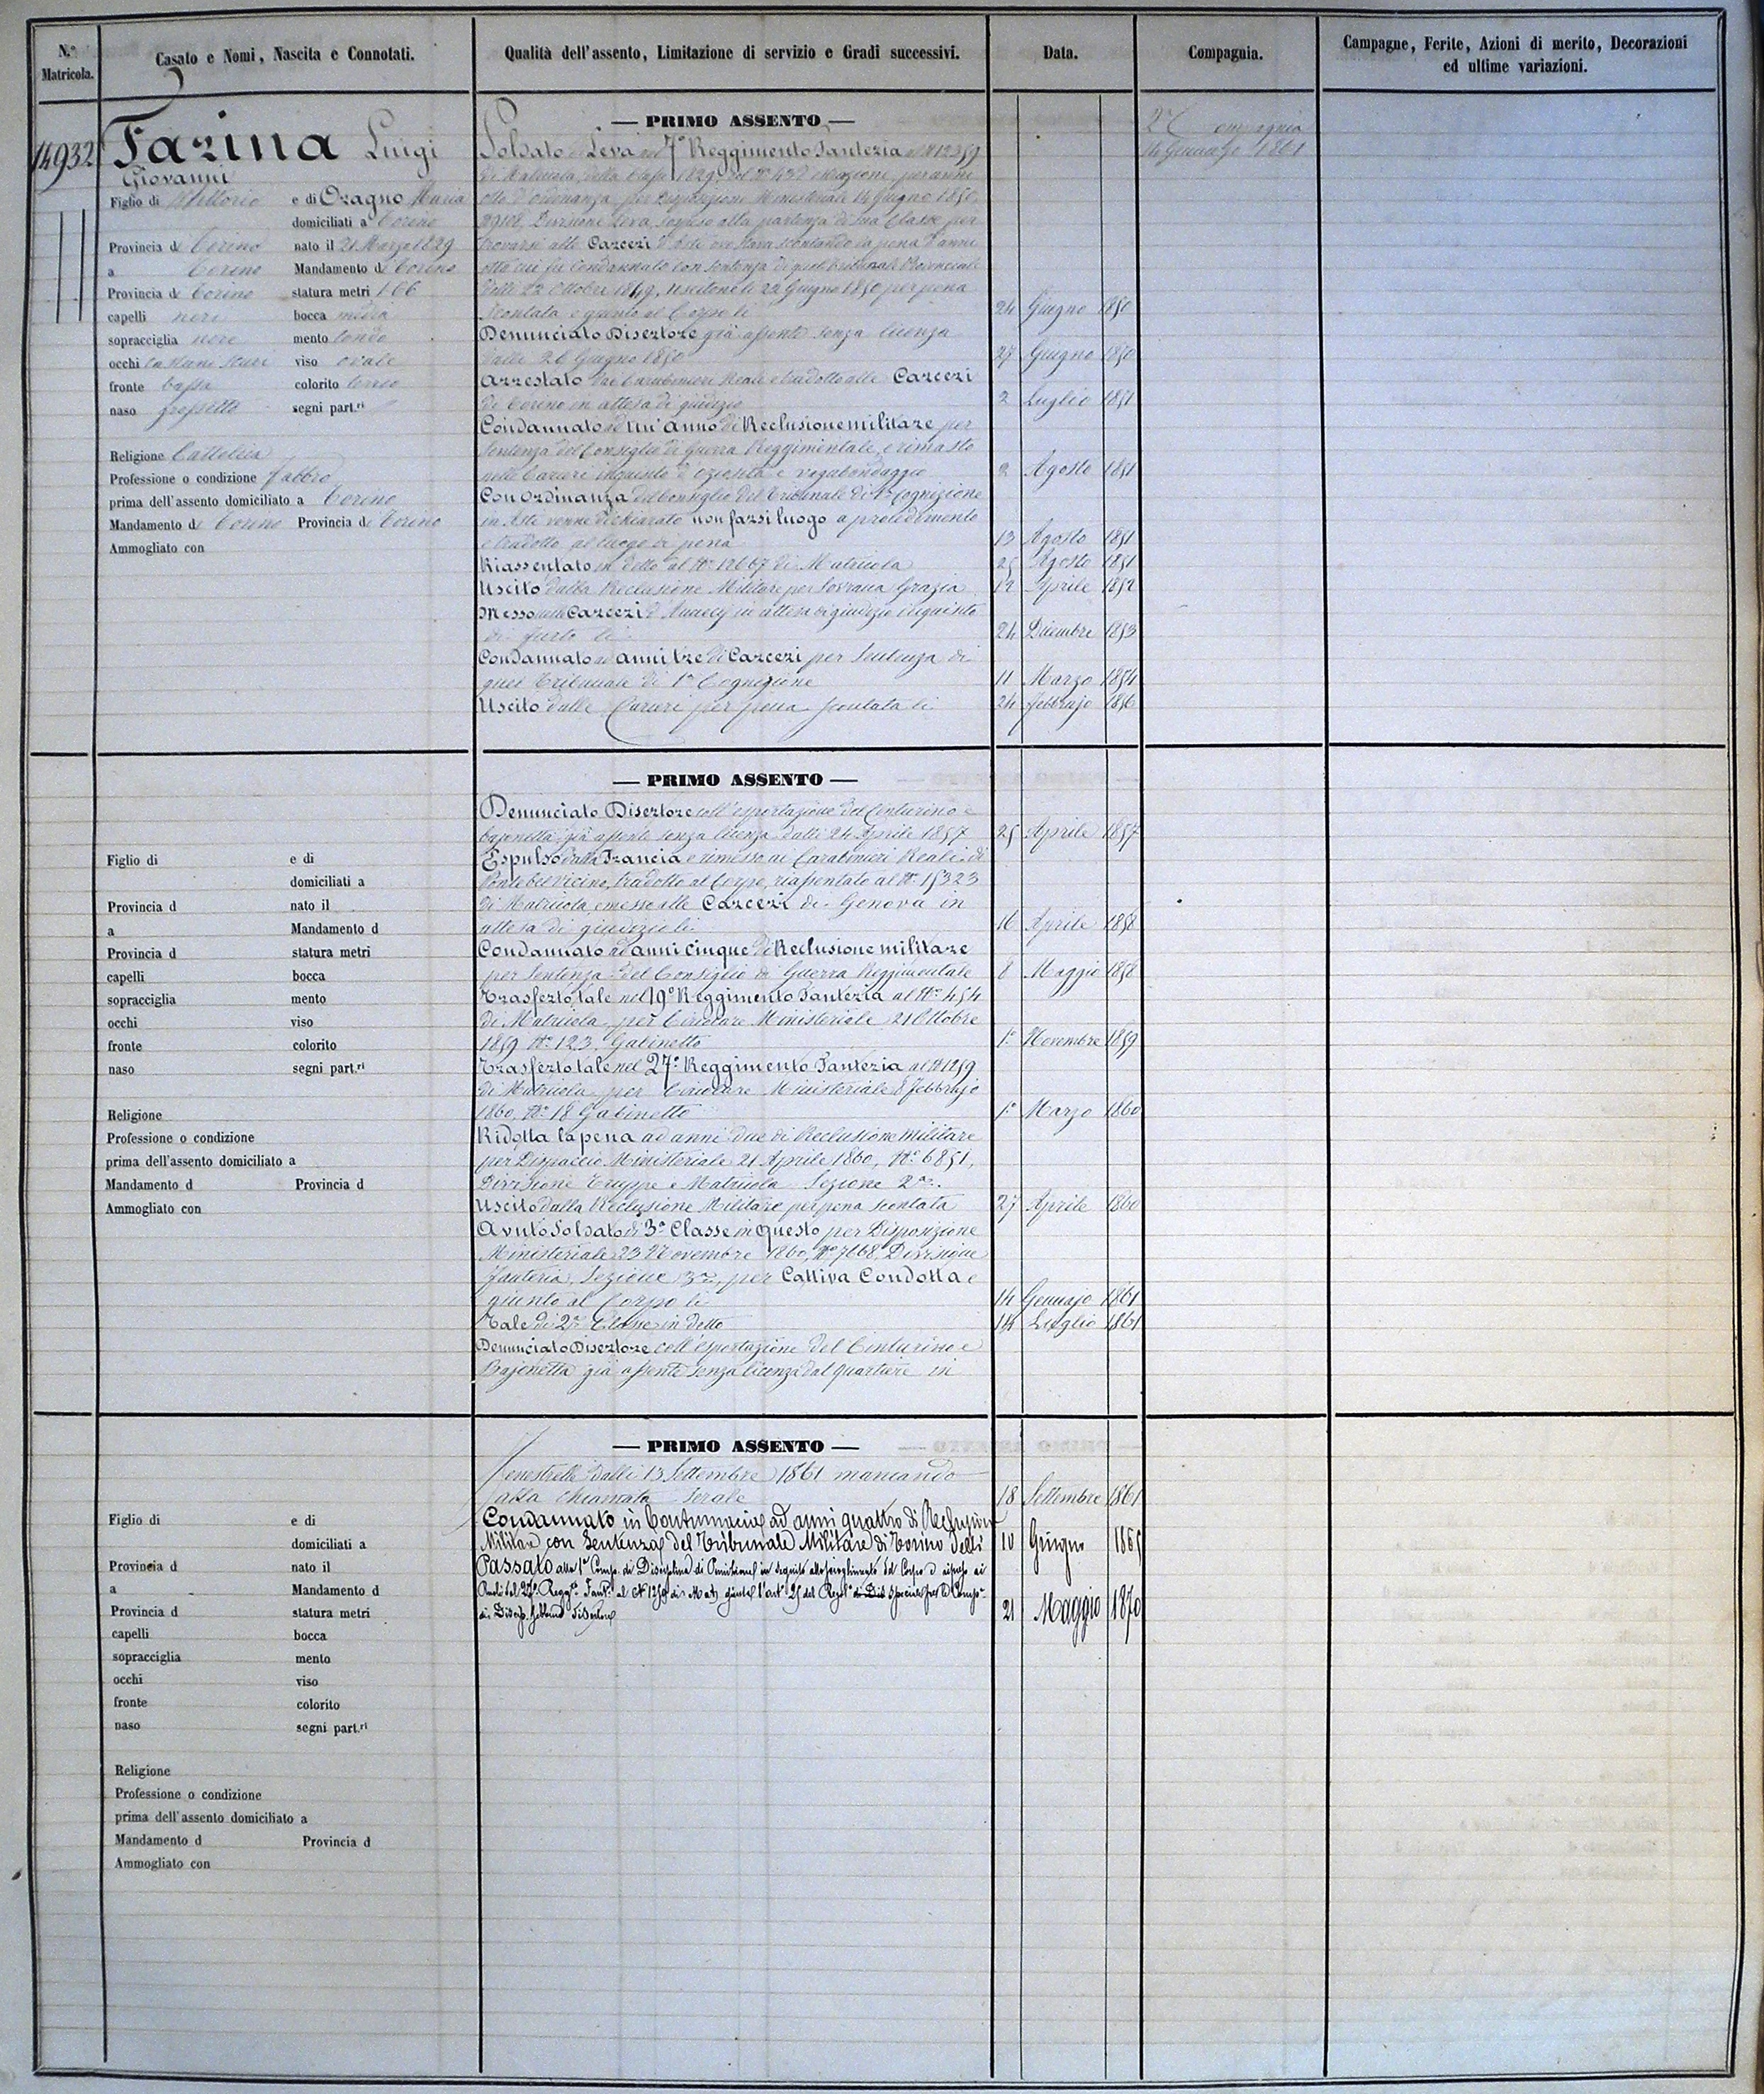 N.º Matricola.
Casato e Nomi, Nascita e Connotati.
Qualità dell'assento, Limitazione di servizio e Gradi successivi.
Data.
Compagnia.
Campagne, Ferite, Azioni di merito, Decorazioni
ed ultime variazioni.
14932
Farina Luigi
Giovanni
Figlio di Vittorio e di Oragno Maria
domiciliati a Torino
Provincia di Torino nato il 21 Marzo 1829
a Torino Mandamento di Torino
Provincia di Torino statura metri 1.66
capelli neri bocca media
sopracciglia nere mento tondo
occhi castani scuri viso ovale
fronte bassa colorito
naso grossetto segni part.ri
Religione Cattolica
Professione o condizione fabbro
prima dell'assento domiciliato a Torino
Mandamento di Torino Provincia di Torino
Ammogliato con
— PRIMO ASSENTO —
Soldato di Leva nel 7º Reggimento Fanteria al Nº 12359
di Matricola, della Classe 1829, col Nº 432 estrazione, per anni
otto d'ordinanza, per Disposizione Ministeriale 14 Giugno 1850,
Divisione Leva, sospeso alla partenza di sua Classe per
trovarsi alle Carceri d'Asti ove stava scontando la pena d'anni
cui fu condannato con sentenza di quel Tribunale Provinciale
delli 22 Ottobre 1849, uscitone li 22 Giugno 1850 per pena
scontata e giunto al Corpo li 24 Giugno 1850
Denunciato Disertore già assente senza licenza
dalli 26 Giugno 1850 27 Giugno 1850
Arrestato dai Carabinieri Reali e tradotto alle Carceri
di Torino in attesa di giudizio 2 Luglio 1851
Condannato ad un'anno di Reclusione militare per
Sentenza del Consiglio di Guerra Reggimentale, e rimasto
nelle Carceri inquisito d'oziosità e vagabondaggio 2 Agosto 1851
Con Ordinanza del Consiglio del Tribunale di 1ª Cognizione
in Asti venne dichiarato non farsi luogo a procedimento
e tradotto al luogo di pena 13 Agosto 1851
Riassentato in detto al Nº 12667 di Matricola 25 Agosto 1851
Uscito dalla Reclusione Militare per Sovrana Grazia 12 Aprile 1852
Messo nelle Carceri d'Annecy in attesa di giudizio inquisito
di furto li 24 Dicembre 1853
Condannato ad anni tre di Carceri per Sentenza di
quel Tribunale di 1ª Cognizione 11 Marzo 1854
Uscito dalle Carceri per pena scontata li 24 febbrajo 1856
2ª Compagnia
14 Gennajo 1861
— PRIMO ASSENTO —
Denunciato Disertore coll'esportazione del Centurino e
bajonetta già assente senza licenza dalli 24 Aprile 1857 25 Aprile 1857
Espulso dalla Francia e rimesso ai Carabinieri Reali di
Pontebelvicino, tradotto al Corpo, riassentato al Nº 15323
di Matricola, e messo alle Carceri di Genova in
attesa di giudizio li 16 Aprile 1858
Condannato ad anni cinque di Reclusione militare
per Sentenza del Consiglio di Guerra Reggimentale 8 Maggio 1858
Trasferto tale nel 19º Reggimento Fanteria al Nº 454
di Matricola, per Circolare Ministeriale 21 Ottobre
1859 Nº 123 Gabinetto 1º Novembre 1859
Trasferto tale nel 27º Reggimento Fanteria al Nº 1259
di Matricola, per Circolare Ministeriale 8 febbrajo
1860, Nº 18 Gabinetto 1º Marzo 1860
Ridotta la pena ad anni due di Reclusione Militare
per Dispaccio Ministeriale 21 Aprile 1860, Nº 6851,
Divisione Truppe e Matricola Sezione 2ª
Uscito dalla Reclusione Militare per pena scontata 27 Aprile 1860
Avuto Soldato di 3ª Classe in questo per Disposizione
Ministeriale 23 Novembre 1860, Nº 7668, Divisione
fanteria, Sezione 3ª, per Cattiva Condotta e
giunto al Corpo li 14 Gennajo 1861
Tale di 2ª Classe in detto 14 Luglio 1861
Denunciato Disertore coll'esportazione del Centurino e
Bajonetta già assente senza licenza dal quartiere in
Figlio di e di
domiciliati a
Provincia d nato il
a Mandamento d
Provincia d statura metri
capelli bocca
sopracciglia mento
occhi viso
fronte colorito
naso segni part.ri
Religione
Professione o condizione
prima dell'assento domiciliato a
Mandamento d Provincia d
Ammogliato con
— PRIMO ASSENTO —
Fenestrelle dalli 13 Settembre 1861 mancando
alla chiamata serale 18 Settembre 1861
Condannato in Contumacia ad anni quattro di Reclusione
Militare con Sentenza del Tribunale Militare di Torino delli 10 Giugno 1865
Passato alla 1ª Comp. di Disciplina di Punizione in seguito allo scioglimento del Corpo e ai
Ruoli del 27º Regg. Fant. al Nº 1259 di Mat. giusta l'art. 25 del Reg.
di Discip. Disertore 21 Maggio 1870
Figlio di e di
domiciliati a
Provincia d nato il
a Mandamento d
Provincia d statura metri
capelli bocca
sopracciglia mento
occhi viso
fronte colorito
naso segni part.ri
Religione
Professione o condizione
prima dell'assento domiciliato a
Mandamento d Provincia d
Ammogliato con